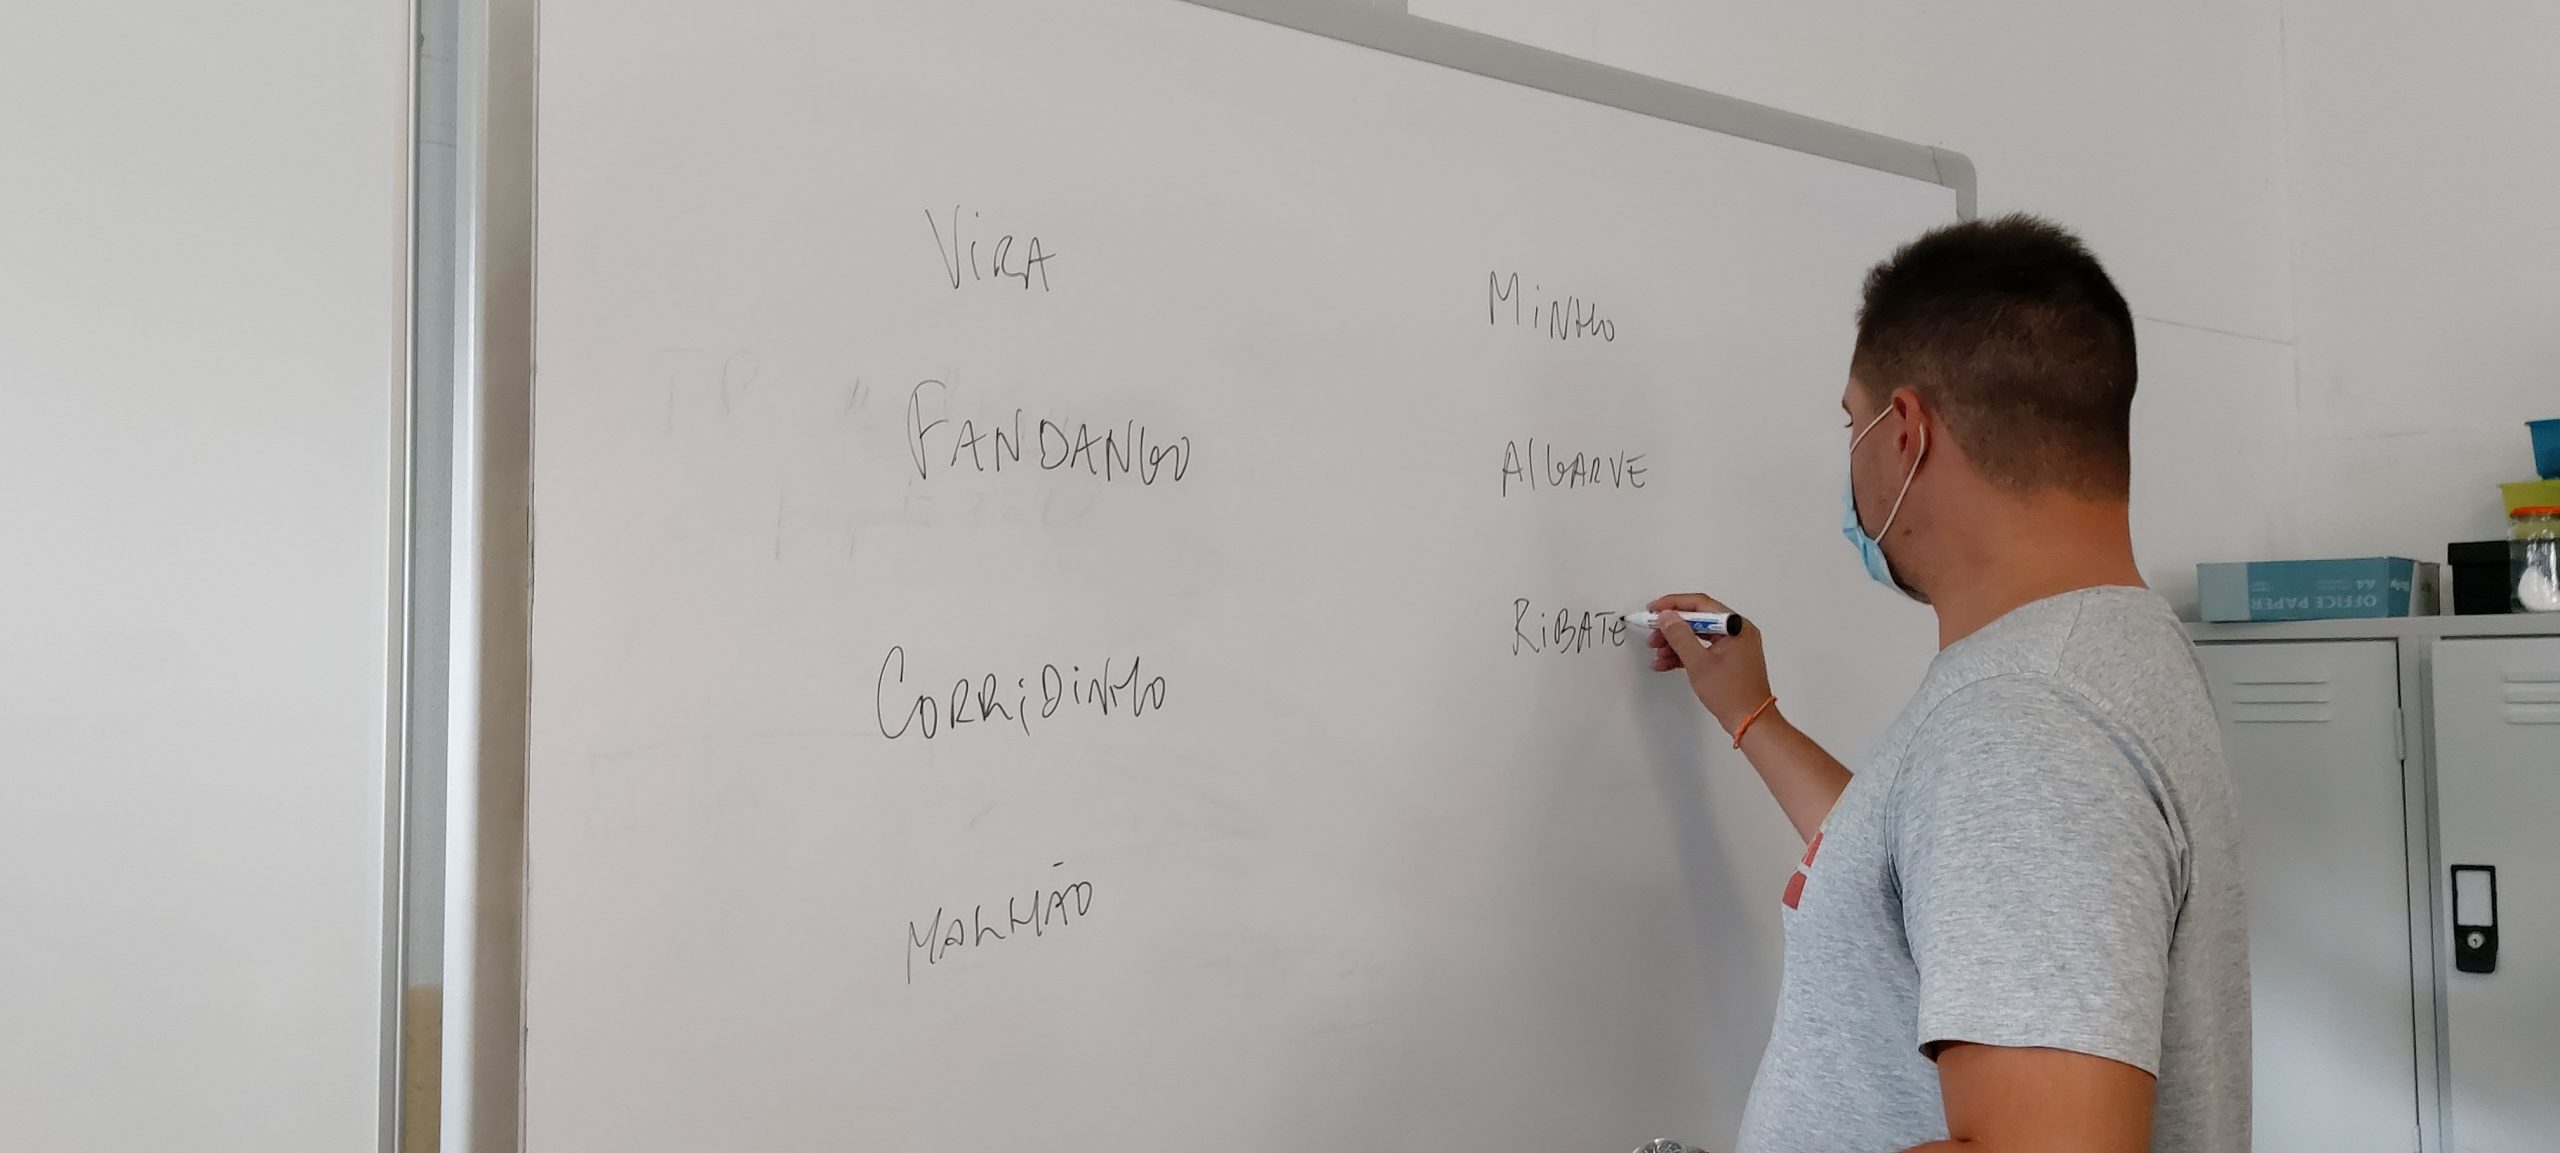 VIRA
FANDANGO
CORRIDINHO
MALHÃO
MINHO
ALGARVE
RIBATE
OFFICE PAPER
A4